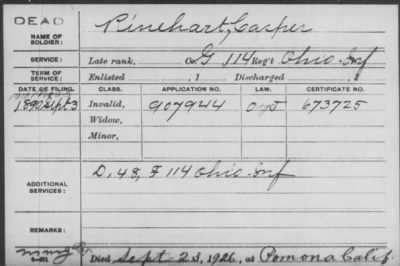 DEAD
NAME OF SOLDIER: Rinehart, Casper
SERVICE: Late rank, Co. G, 114 Reg't Ohio Inf
TERM OF SERVICE: Enlisted , 1 Discharged , 1
DATE OF FILING. CLASS. APPLICATION NO. LAW. CERTIFICATE NO.
1890 Sept 3 Invalid, 907944 673725
Widow,
Minor,
ADDITIONAL SERVICES: D, 48, F 114 Ohio Inf
REMARKS:
Died Sept 23, 1926, at Pomona Calif